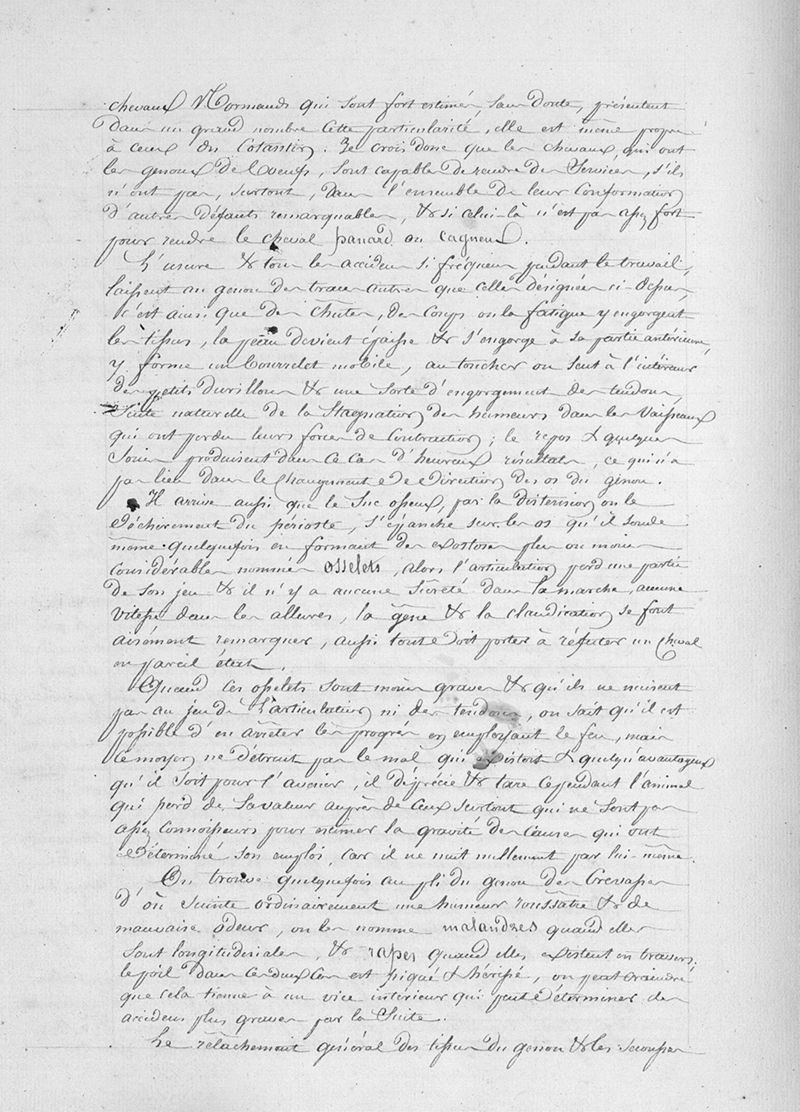 chevaux Normands qui sont fort estimés, sans doute, présentent
dans un grand nombre cette particularité, elle est même propre
à ceux du Cotantin. Je crois donc que les chevaux, qui ont
les genoux de bœufs, sont capable de rendre des services, s'ils
n'ont pas, surtout, dans l'ensemble de leur conformation
d'autres défauts remarquables, & si celui-là n'est pas assez fort
pour rendre le cheval panard ou cagneux.
L'usure & tous les accidens si fréquens pendant le travail,
laissent au genou des traces autres que celles désignées ci-dessus,
c'est ainsi que des chûtes, des coups ou la fatigue y engorgent
les tissus, la peau devient épaisse & s'engorge à sa partie antérieure,
y forme un bourrelet mobile, au toucher on sent à l'intérieur
des petits durillons & une sorte d'engorgement des tendons,
Suite naturelle de la Stagnation des humeurs dans les Vaisseaux
qui ont perdu leurs forces de contraction; le repos & quelques
soins produisent dans ce cas d'heureux résultats, ce qui n'a
pas lieu dans le changement de direction des os du genou.
Il arrive aussi que le Suc osseux, par la distension ou le
déchirement du périoste, s'épanche sur les os qu'il soude
même quelquefois en formant des exostoses plus ou moins
considérables nommés osselets, alors l'articulation perd une partie
de son jeu & il n'y a aucune sûreté dans la marche, aucune
vitesse dans les allures, la gêne & la claudication se font
aisément remarquer, aussi tout doit porter à réfuter un cheval
en pareil état.
Quand ces osselets sont moins graves & qu'ils ne nuisent
pas au jeu de l'articulation ni des tendons, on sait qu'il est
possible d'en arrêter les progrès en employant le feu, mais
ce moyen ne détruit pas le mal qui existoit & quelqu'avantageux
qu'il soit pour l'avenir, il déprécie & tare cependant l'animal
qui perd de sa valeur auprès de ceux surtout qui ne sont pas
assez connoisseurs pour estimer la gravité des causes qui ont
déterminé son emploi, car il ne nuit nullement par lui-même.
On trouve quelquefois au pli du genou des Crevasses
d'où suinte ordinairement une humeur roussâtre & de
mauvaise odeur, on les nomme malandres quand elles
sont longitudinales, & rapes quand elles existent en travers;
le poil dans ces deux cas est piqué & hérissé, on peut craindre
que cela tienne à un vice intérieur qui peut déterminer des
accidens plus graves par la Suite.
Le relachement général des tissus du genou & les secousses